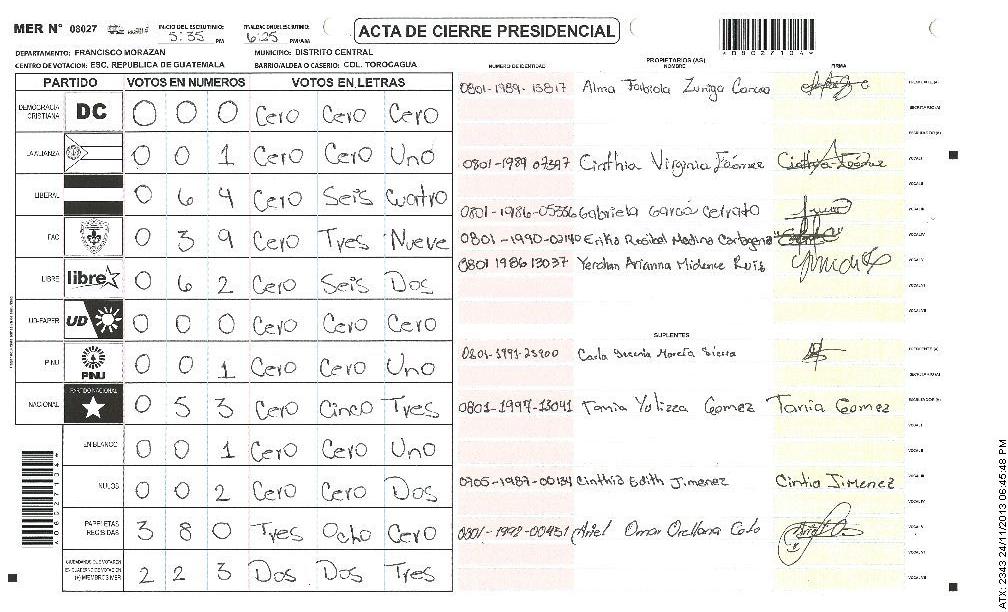 MER N° 08027 INICIO DEL ESCRUTINIO 5:35 PM FINALIZACION DEL ESCRUTINIO 6:25 PM/AM ACTA DE CIERRE PRESIDENCIAL
DEPARTAMENTO: FRANCISCO MORAZAN MUNICIPIO: DISTRITO CENTRAL
CENTRO DE VOTACION: ESC. REPUBLICA DE GUATEMALA BARRIO/ALDEA O CASERIO: COL. TOROCAGUA
PARTIDO VOTOS EN NUMEROS VOTOS EN LETRAS
NUMERO DE IDENTIDAD PROPIETARIOS (AS) NOMBRE FIRMA
DEMOCRACIA CRISTIANA DC 0 0 0 Cero Cero Cero
LA ALIANZA 0 0 1 Cero Cero Uno
LIBERAL 0 6 4 Cero Seis Cuatro
FAC 0 3 9 Cero Tres Nueve
LIBRE libre 0 6 2 Cero Seis Dos
UD-FAPER UD 0 0 0 Cero Cero Cero
PINU PINU 0 0 1 Cero Cero Uno
NACIONAL PARTIDO NACIONAL 0 5 3 Cero Cinco Tres
EN BLANCO 0 0 1 Cero Cero Uno
NULOS 0 0 2 Cero Cero Dos
PAPELETAS RECIBIDAS 3 8 0 Tres Ocho Cero
CIUDADANOS QUE VOTARON EN CUADERNO DE VOTACION (+) MIEMBROS MER 2 2 3 Dos Dos Tres
0801-1989-15817 Alma Fabiola Zuniga
0801-1989 07397 Cinthia Virginia
0801-1986-05336 Gabriela García Cerrato
0801-1990-02140 Erika Rosibel Medina Cartagena
0801 1986 13037 Yerchan Arianna Midence Ruis
SUPLENTES
0801-1991-23900 Carla Moncta Sierra
0801-1997-13041 Tania Yulizza Gomez Tania Gomez
0705-1987-00134 Cinthia Edith Jimenez Cintia Jimenez
0801-1992-00451 Ariel Omar Orellana
ATX: 2343 24/11/2013 06:45:48 PM